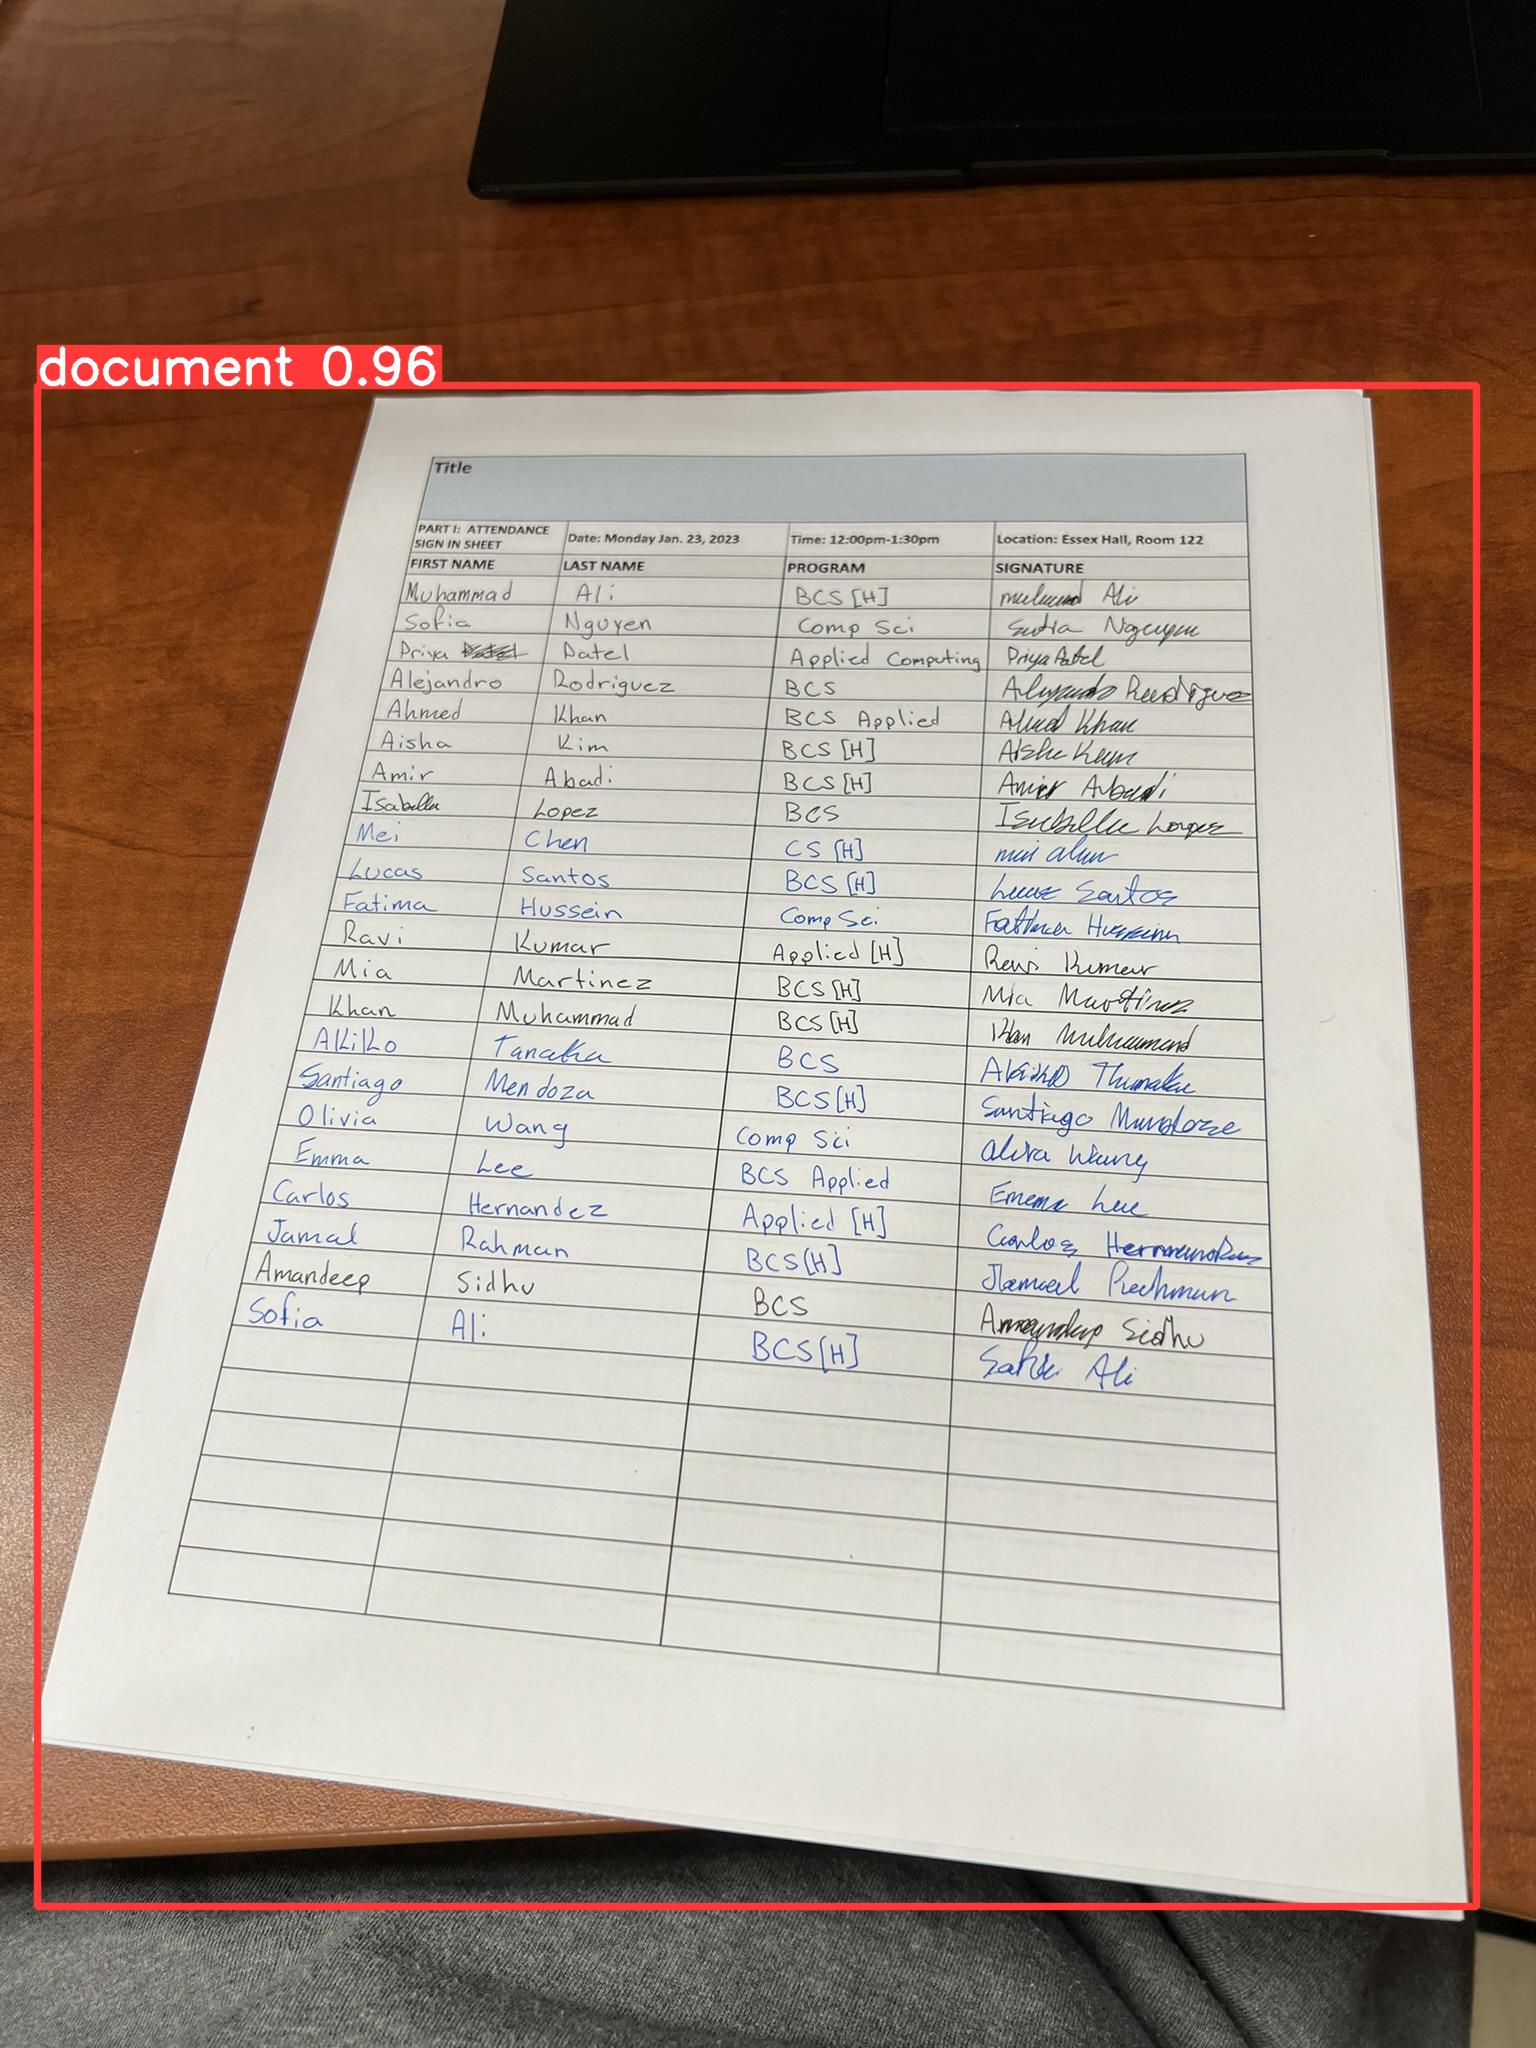 document 0.96
Title
PART I: ATTENDANCE SIGN IN SHEET Date: Monday Jan. 23, 2023 Time: 12:00pm-1:30pm Location: Essex Hall, Room 122
FIRST NAME LAST NAME PROGRAM SIGNATURE
Muhammad Ali BCS [H] Ali
Sofia Nguyen Comp Sci Nguyen
Priya Patel Applied Computing Priya Patel
Alejandro Rodriguez BCS Alejandro Rodriguez
Ahmed Khan BCS Applied Ahmed Khan
Aisha Kim BCS [H] Aisha Kim
Amir Abadi BCS [H] Amir Abadi
Isabella Lopez BCS Isabella Lopez
Mei Chen CS [H]
Lucas Santos BCS [H] Lucas Santos
Fatima Hussein Comp Sci Fatima Hussein
Ravi Kumar Applied [H] Ravi Kumar
Mia Martinez BCS [H] Mia Martinez
Khan Muhammad BCS [H] Khan Muhammad
Akiko Tanaka BCS Akiko
Santiago Mendoza BCS [H] Santiago Mendoza
Olivia Wang Comp Sci Wang
Emma Lee BCS Applied Emma Lee
Carlos Hernandez Applied [H] Carlos Hernandez
Jamal Rahman BCS [H] Jamal Rahman
Amandeep Sidhu BCS Amandeep Sidhu
Sofia Ali BCS [H] Ali